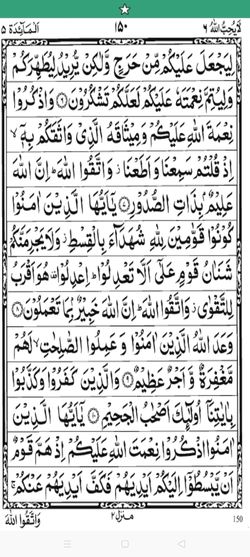 لَا يُحِبُّ اللّٰهُ ٦ ١٥٠ اَلْمَآئِدَة ٥
لِيَجْعَلَ عَلَيْكُمْ مِّنْ حَرَجٍ وَّلٰكِنْ يُّرِيْدُ لِيُطَهِّرَكُمْ
وَلِيُتِمَّ نِعْمَتَهٗ عَلَيْكُمْ لَعَلَّكُمْ تَشْكُرُوْنَ ۝٦ وَاذْكُرُوْا
نِعْمَةَ اللّٰهِ عَلَيْكُمْ وَمِيْثَاقَهُ الَّذِيْ وَاثَقَكُمْ بِهٖٓ ۙ
اِذْ قُلْتُمْ سَمِعْنَا وَاَطَعْنَا ؗ وَاتَّقُوا اللّٰهَ ؕ اِنَّ اللّٰهَ
عَلِيْمٌۢ بِذَاتِ الصُّدُوْرِ ۝٧ يٰٓاَيُّهَا الَّذِيْنَ اٰمَنُوْا
كُوْنُوْا قَوّٰمِيْنَ لِلّٰهِ شُهَدَآءَ بِالْقِسْطِ ؗ وَلَا يَجْرِمَنَّكُمْ
شَنَاٰنُ قَوْمٍ عَلٰٓى اَلَّا تَعْدِلُوْا ؕ اِعْدِلُوْا ۫ هُوَ اَقْرَبُ
لِلتَّقْوٰى ؗ وَاتَّقُوا اللّٰهَ ؕ اِنَّ اللّٰهَ خَبِيْرٌۢ بِمَا تَعْمَلُوْنَ ۝٨
وَعَدَ اللّٰهُ الَّذِيْنَ اٰمَنُوْا وَعَمِلُوا الصّٰلِحٰتِ ۙ لَهُمْ
مَّغْفِرَةٌ وَّاَجْرٌ عَظِيْمٌ ۝٩ وَالَّذِيْنَ كَفَرُوْا وَكَذَّبُوْا
بِاٰيٰتِنَآ اُولٰٓئِكَ اَصْحٰبُ الْجَحِيْمِ ۝١٠ يٰٓاَيُّهَا الَّذِيْنَ
اٰمَنُوا اذْكُرُوْا نِعْمَتَ اللّٰهِ عَلَيْكُمْ اِذْ هَمَّ قَوْمٌ
اَنْ يَّبْسُطُوْٓا اِلَيْكُمْ اَيْدِيَهُمْ فَكَفَّ اَيْدِيَهُمْ عَنْكُمْ ۚ
وَاتَّقُوا اللّٰهَ منزل ٢ 150